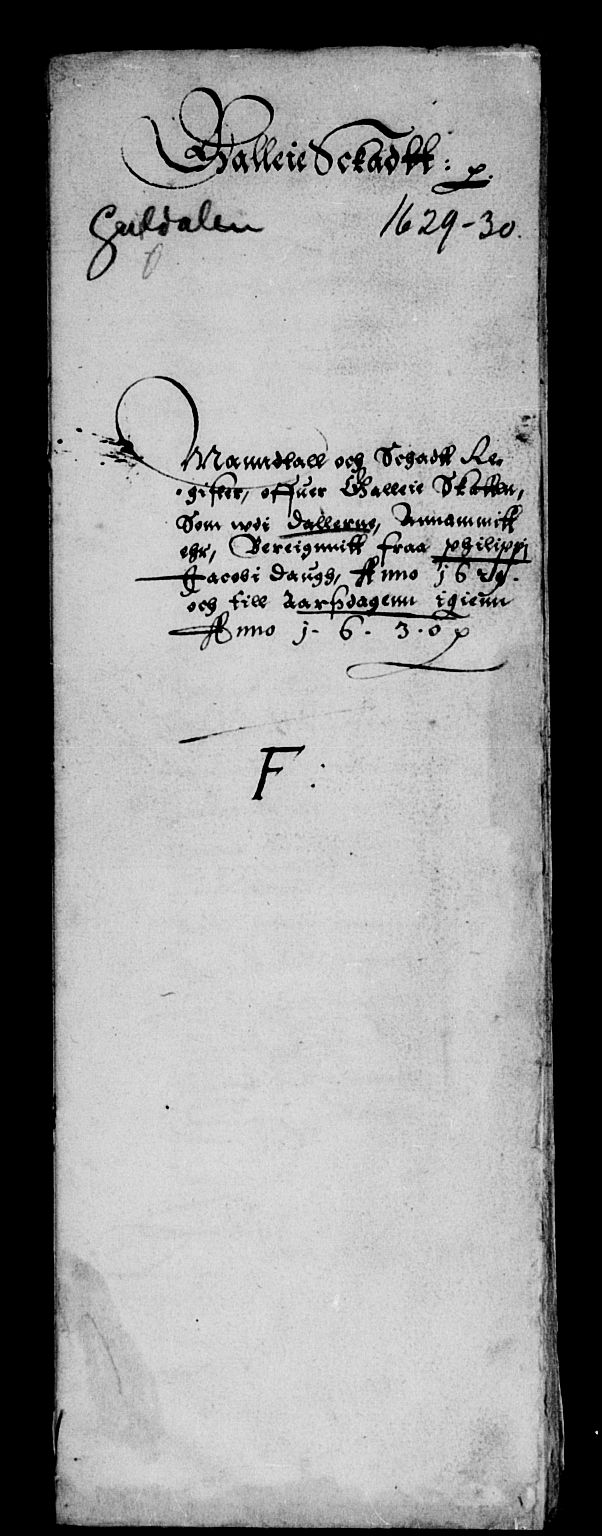 Galleie Schadtt: p.
Guldalen 1629-30.
Manndtall och Schadtt Re-
gister, offuer Galleie Skatten,
Som wdi Dallerne, Annammitt
ehr, Bereignnitt fraa philippj
Jacobi daugh, Anno 1629.
och till Aarsdagenn igienn
Anno j. 6. 3. 0 p
F: